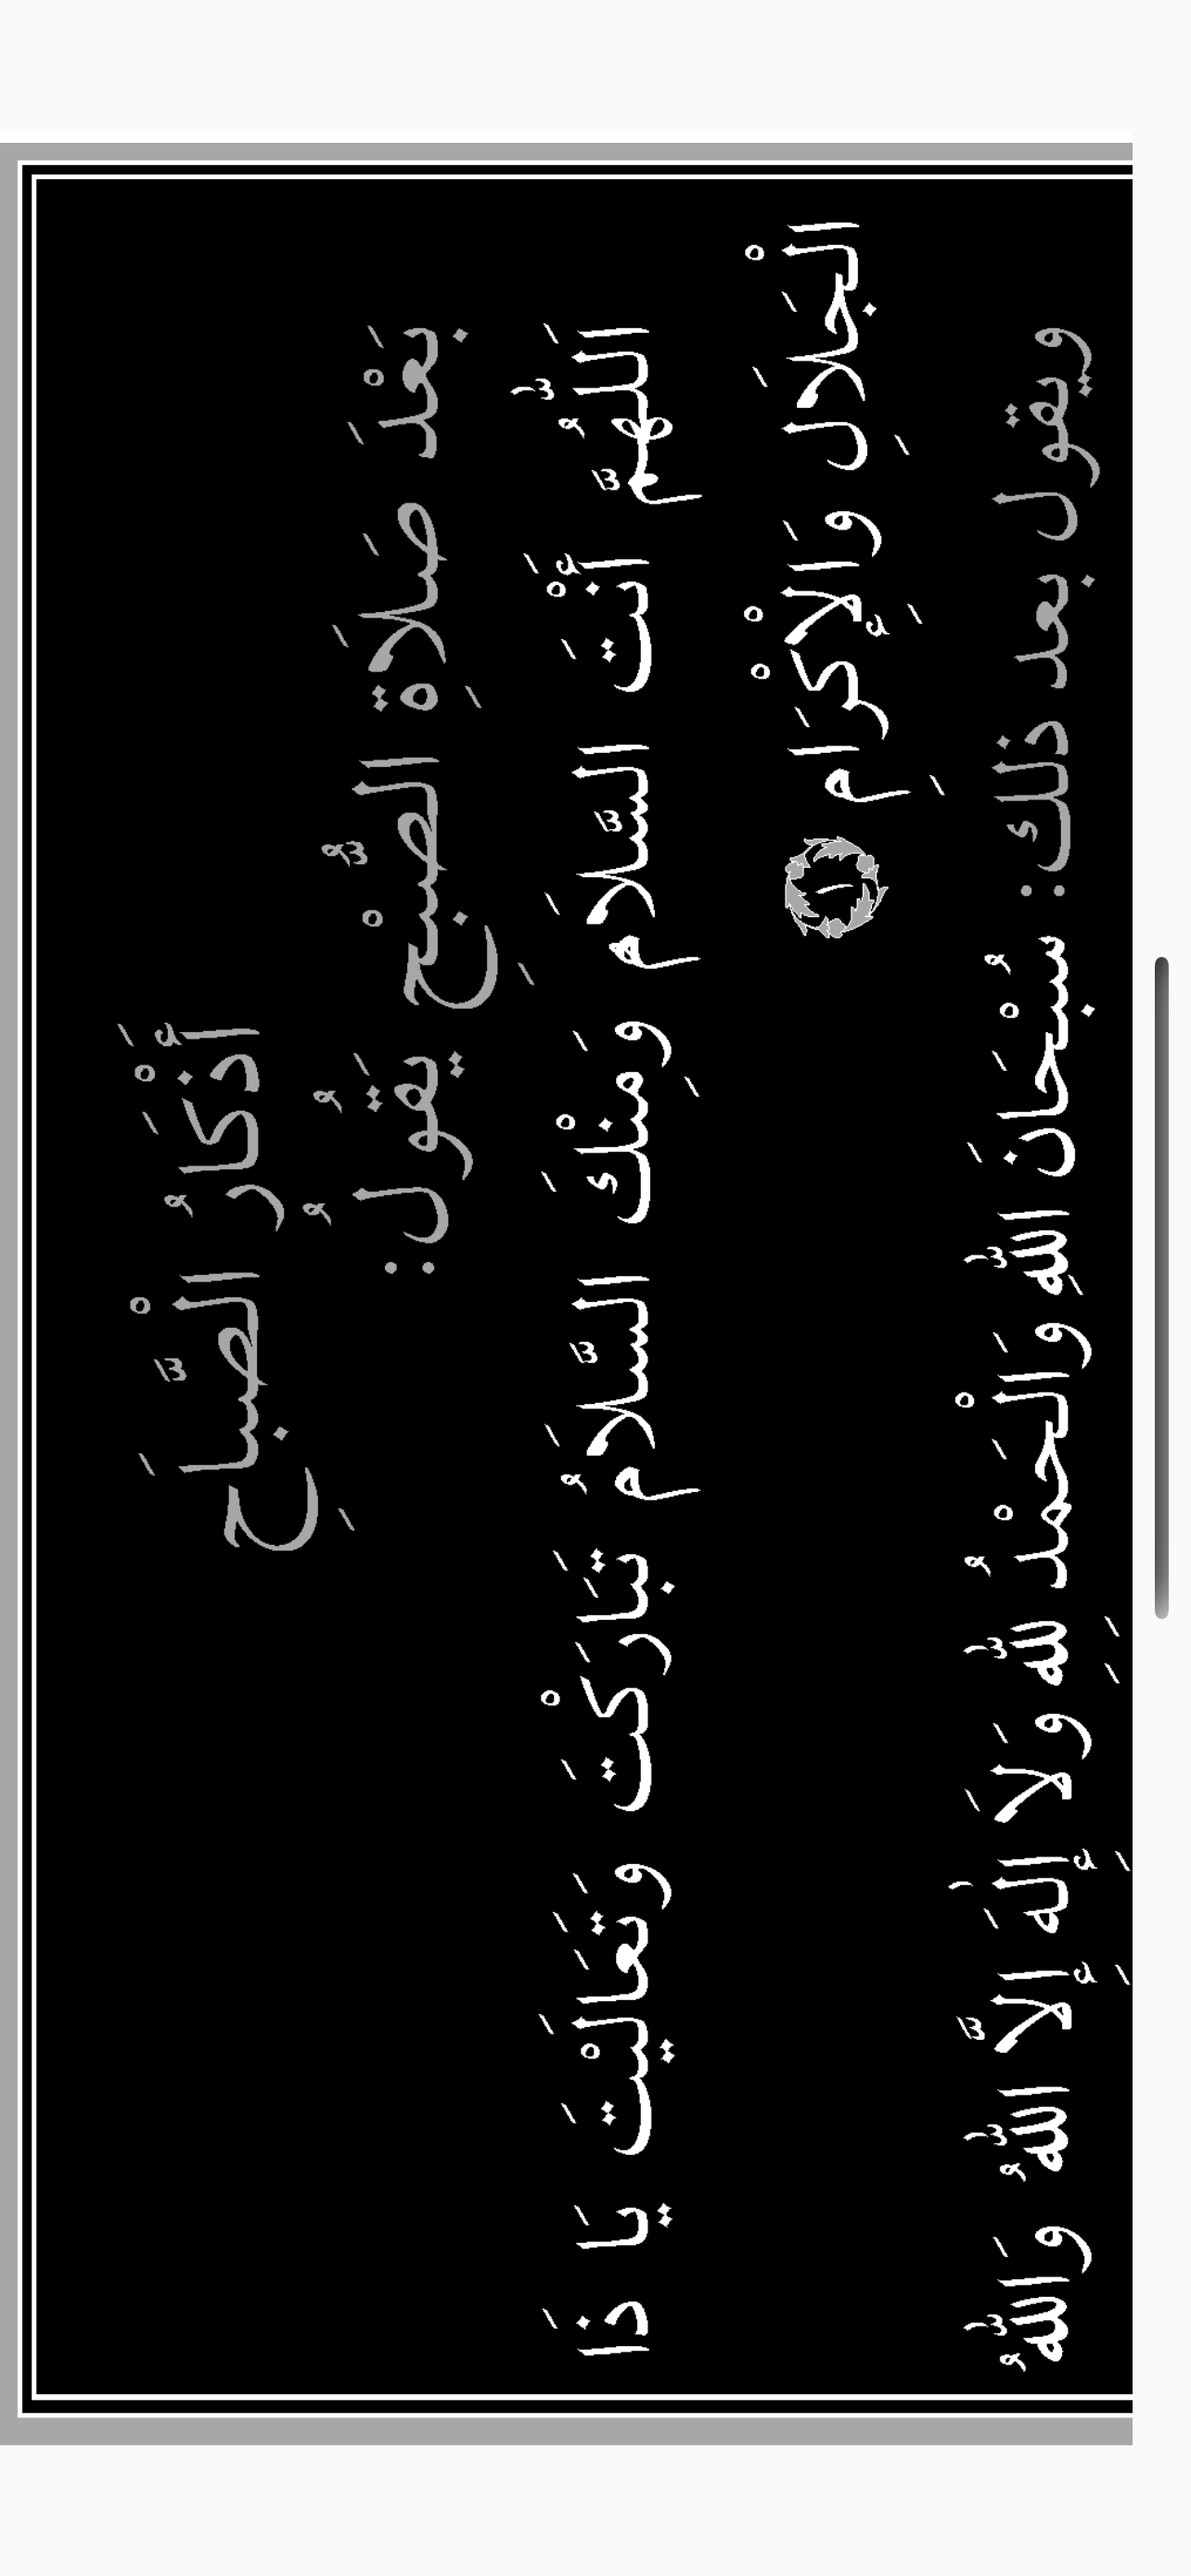 أَذْكَارُ الْصَّبَاحِ
بَعْدَ صَلَاةِ الصُّبْحِ يَقُولُ:
اَللّٰهُمَّ أَنْتَ السَّلَامِ وَمِنْكَ السَّلَامُ تَبَارَكْتَ وَتَعَالَيْتَ يَا ذَا
الْجَلَالِ وَالْإِكْرَامِ
ويقول بعد ذلك: سُبْحَانَ اللّٰهِ وَالْحَمْدُ لِلّٰهِ وَلَا إِلٰهَ إِلَّا اللّٰهُ وَاللّٰهُ